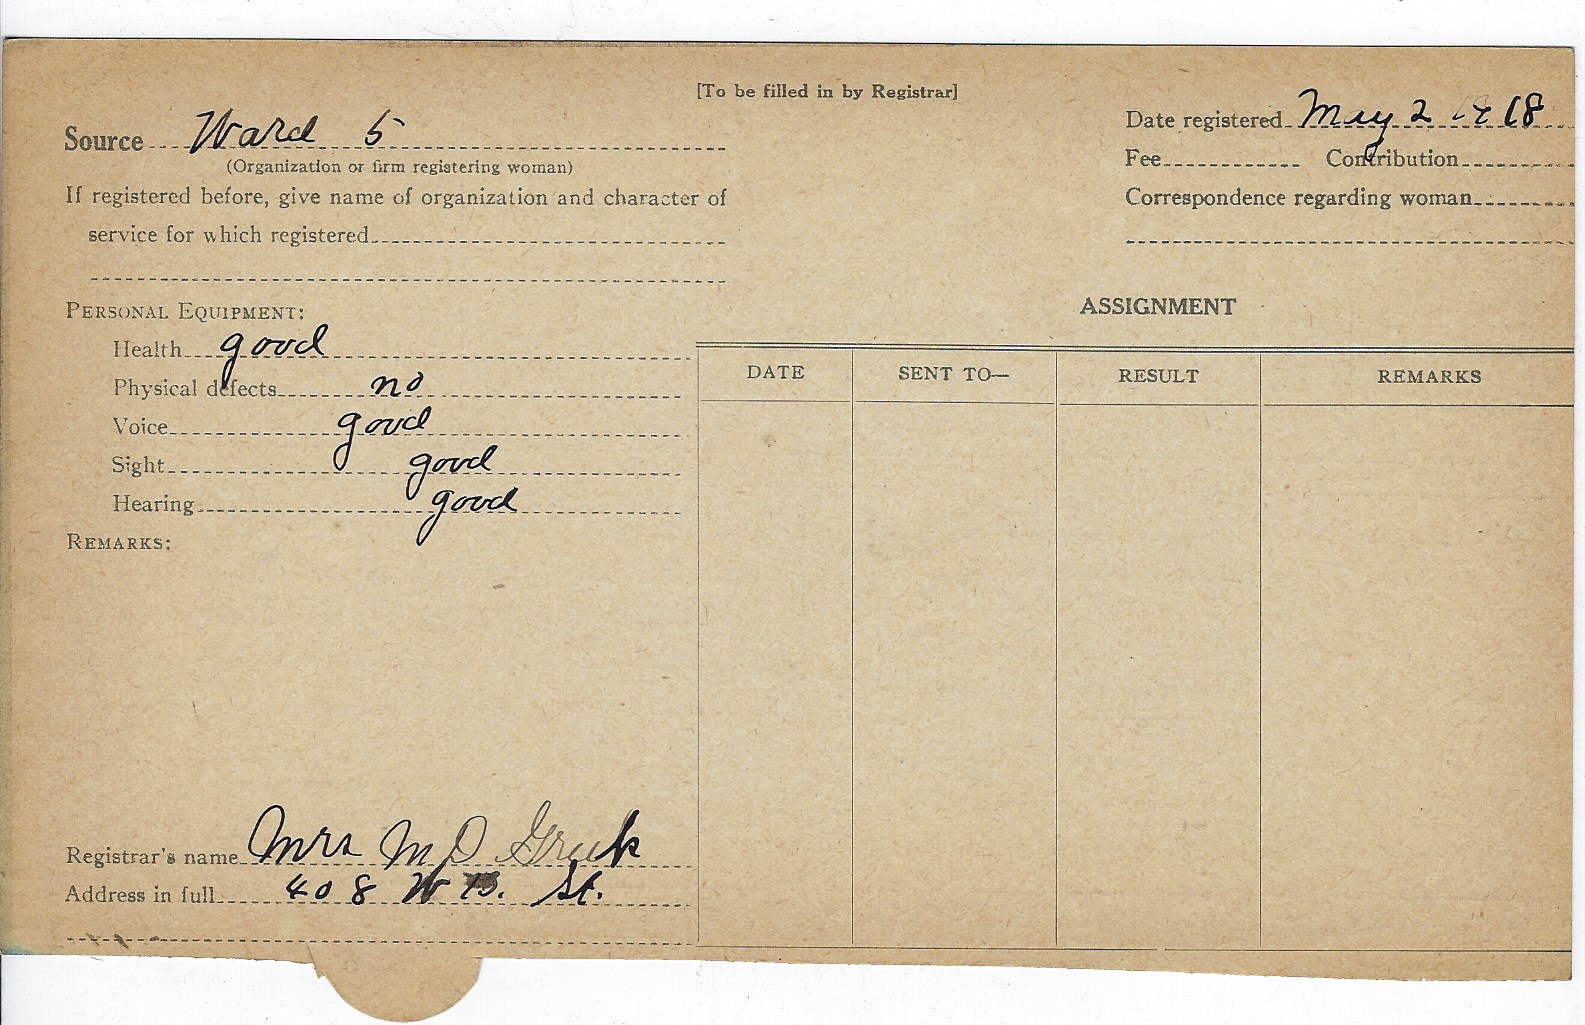 [To be filled in by Registrar]
Source Ward 5
(Organization or firm registering woman)
If registered before, give name of organization and character of
service for which registered
Date registered May 2 1918
Fee Contribution
Correspondence regarding woman
PERSONAL EQUIPMENT:
Health good
Physical defects no
Voice good
Sight good
Hearing good
REMARKS:
ASSIGNMENT
DATE SENT TO— RESULT REMARKS
Registrar's name Mrs M D
Address in full 408 W St.